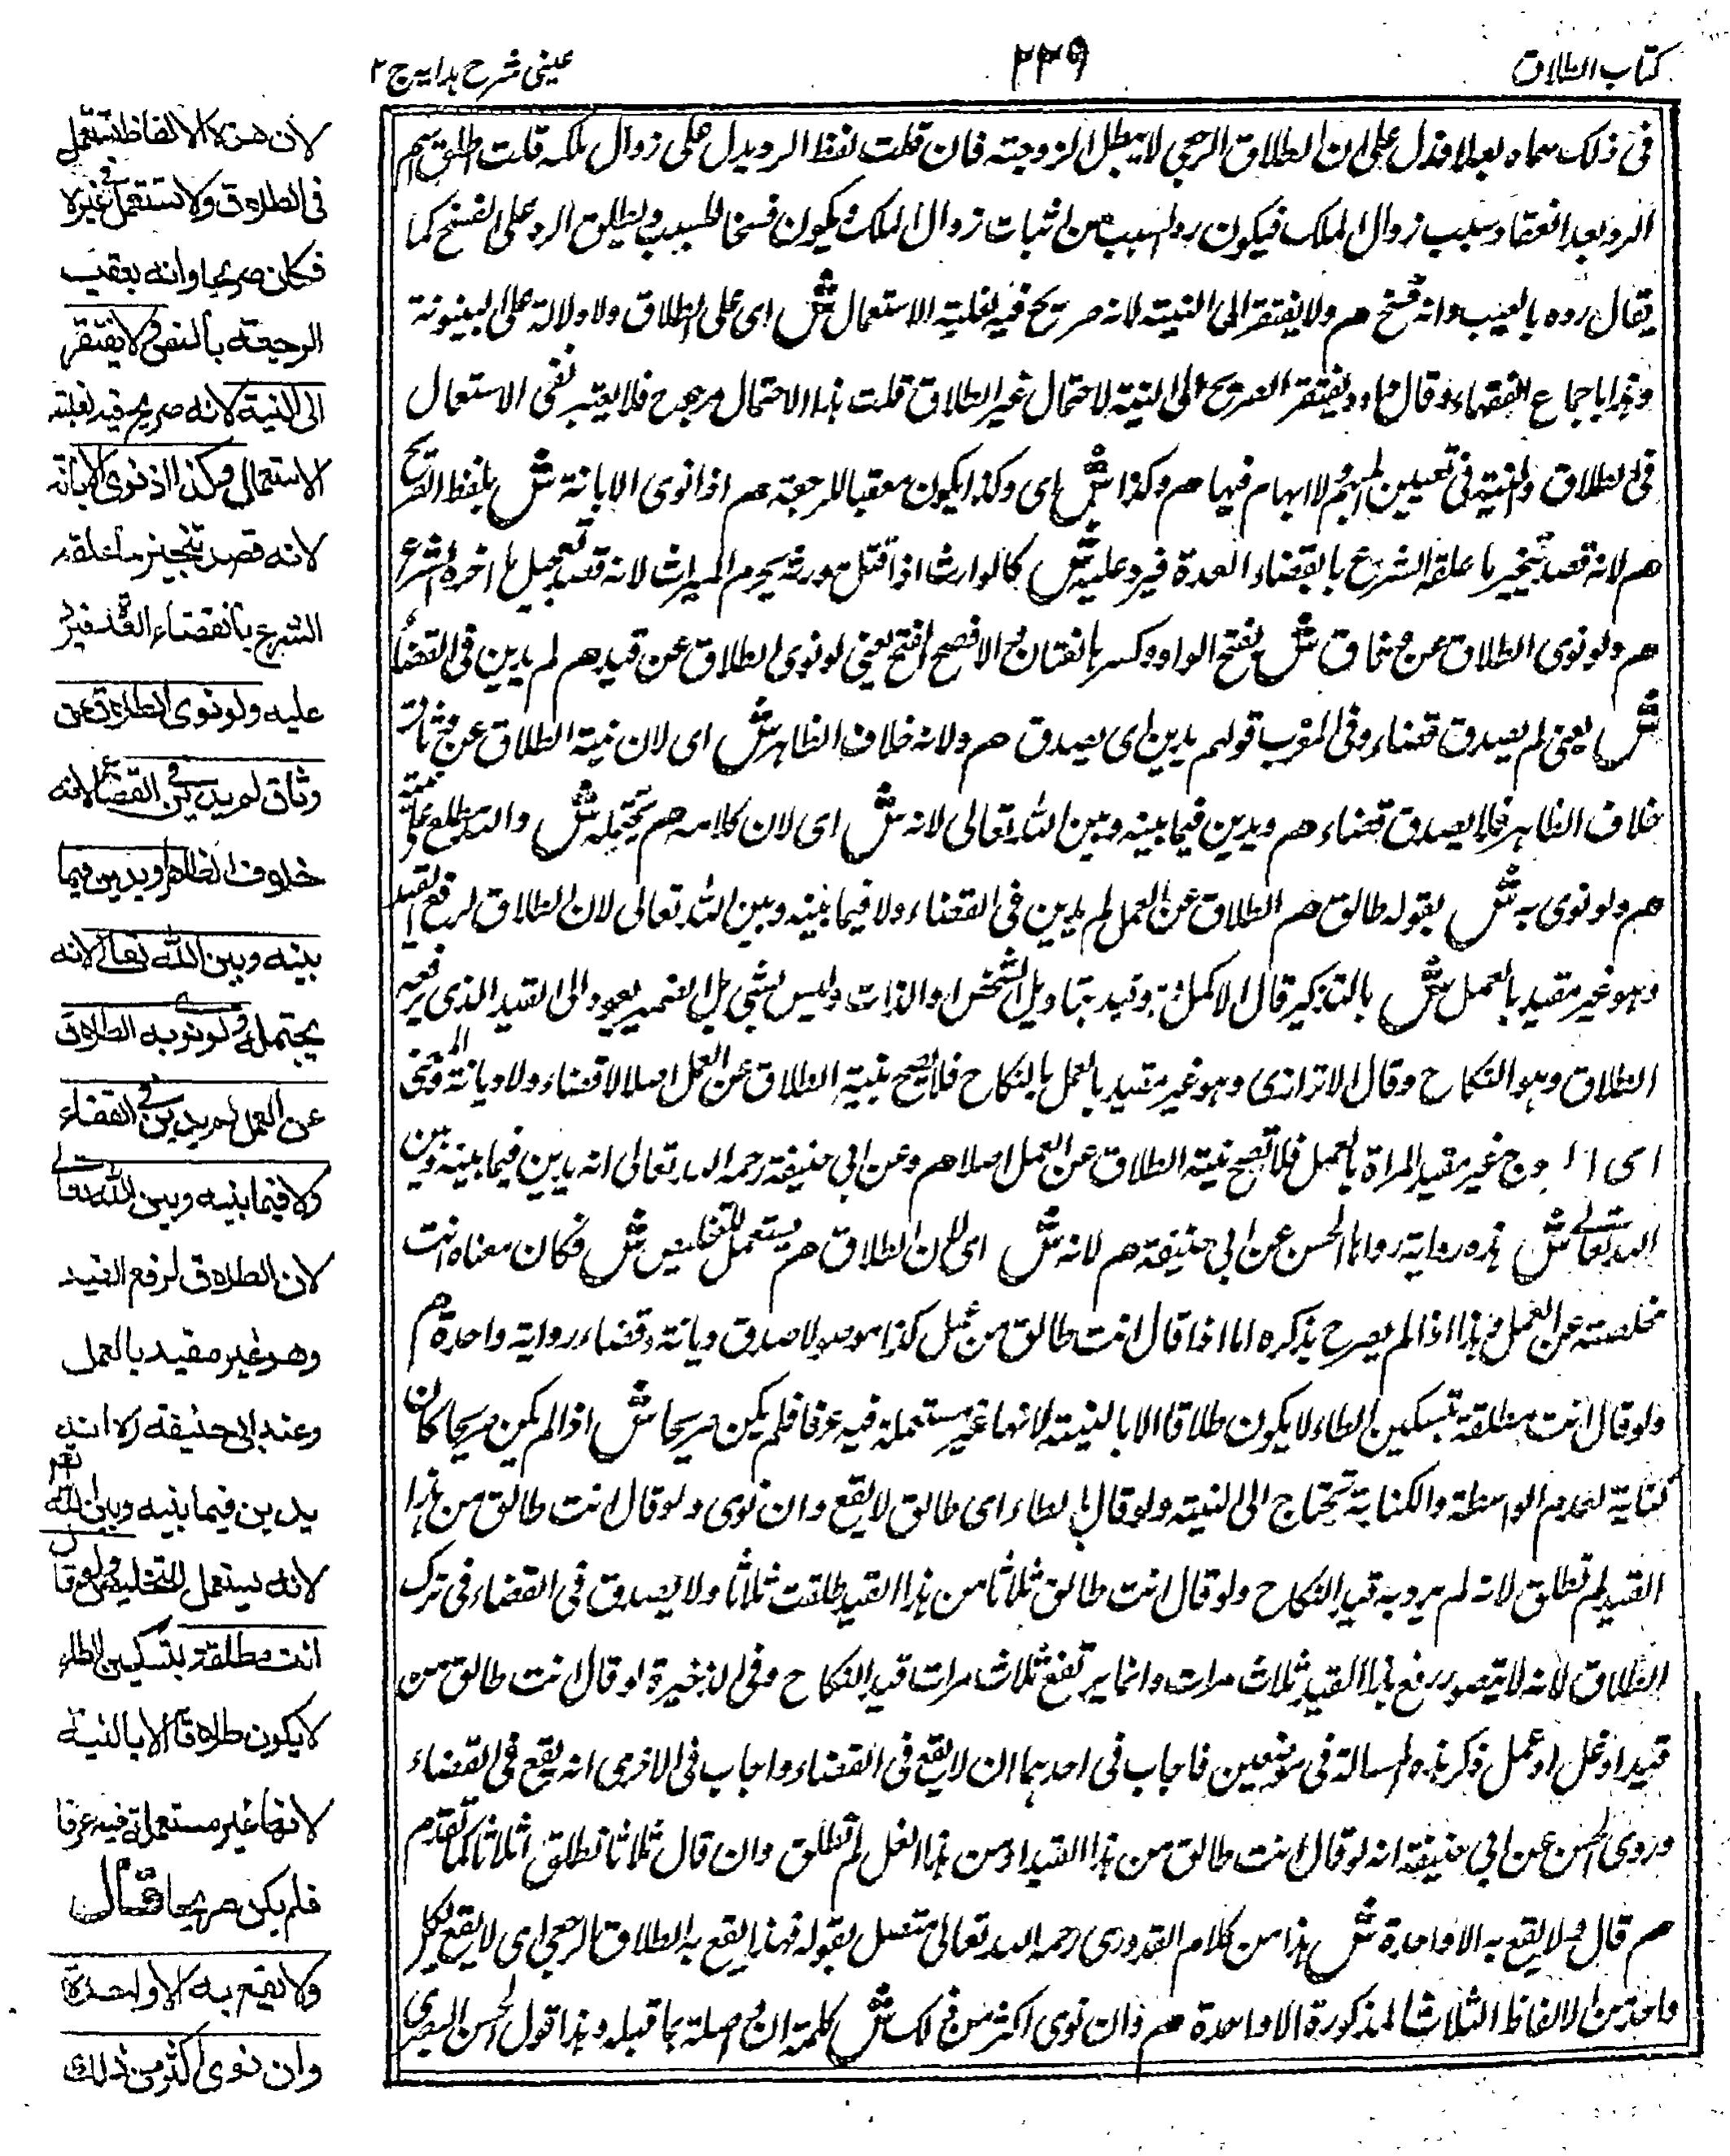 كتاب الطلاق
٢٢٩
عینی شرح ہدایہ ج ٢
فی ذلک سماہ بعلا فدل علی ان الطلاق الرجعی لا یبطل الزوجیۃ فان قلت لفظ الرد یدل علی زوال ملکہ قلت اطلق اسم
الرد بعد انعقاد سبب زوال الملک فیکون رد السبب من اثبات زوال الملک ویکون فسخا للسبب ویطلق الرد علی الفسخ کما
یقال ردہ بالعیب وانہ فسخ م ولا یفتقر الی النیۃ لانہ صریح فیہ لغلبۃ الاستعمال ش ای علی الطلاق ولا دلالۃ علی البینونۃ
وہذا باجماع الفقہاء وقال داود یفتقر الصریح الی النیۃ لاحتمال غیر الطلاق قلت ہذا الاحتمال مرجوح فلا یعتبر نفی الاستعمال
فی الطلاق والنیۃ فی تعیین المبہم ولا ابہام فیہا م وکذا ش ای وکذا یکون معقبا للرجعۃ م اذا نوی الابانۃ ش بلفظ الصریح
م لانہ قصد تنجیز ما علقہ الشرع بانقضاء العدۃ فیرد علیہ ش کالوارث اذا قتل مورثہ یحرم المیراث لانہ قصد تعجیل ما اخرہ الشرع
م ولو نوی الطلاق عن وثاق ش بفتح الواو وکسرہا لغتان والافصح الفتح یعنی لو نوی الطلاق عن قید م لم یدین فی القضاء
ش یعنی لم یصدق قضاء وفی المغرب قولہم یدین ای یصدق م ولانہ خلاف الظاہر ش ای لان نیۃ الطلاق عن وثاق
خلاف الظاہر فلا یصدق قضاء م ویدین فیما بینہ وبین اللہ تعالی لانہ ش ای لان کلامہ م یحتملہ ش واللہ مطلع علی نیتہ
م ولو نوی بہ ش بقولہ طالق م الطلاق عن العمل لم یدین فی القضاء ولا فیما بینہ وبین اللہ تعالی لان الطلاق لرفع القید
وہو غیر مقید بالعمل ش بالتذکیر قال الاکمل وقید بتاویل الشخص او الذات ولیس بشی بل الضمیر یعود الی القید الذی یرفعہ
الطلاق وہو النکاح وقال الاترازی وہو غیر مقید بالعمل بالنکاح فلا یصح نیۃ الطلاق عن العمل اصلا لا قضاء ولا دیانۃ
ای الزوج غیر مقید المراۃ بالعمل فلا تصح نیۃ الطلاق عن العمل اصلا م وعن ابی حنیفۃ رحمہ اللہ تعالی انہ یدین فیما بینہ وبین
اللہ تعالی ش ہذہ روایۃ رواہا الحسن عن ابی حنیفۃ م لانہ ش ای لان الطلاق م یستعمل للتخلیص ش فکان معناہ انت
مخلصۃ عن العمل وہذا اذا لم یصرح بذکرہ اما اذا قال انت طالق من عمل کذا موصولا صدق دیانۃ وقضاء روایۃ واحدۃ م
ولو قال انت مطلقۃ بتسکین الطاء لا یکون طلاقا الا بالنیۃ لانہا غیر مستعملۃ فیہ عرفا فلم یکن صریحا ش اذا لم یکن صریحا کان
کنایۃ لعدم الواسطۃ والکنایۃ تحتاج الی النیۃ ولو قال بالطاء ای طالق لا یقع وان نوی ولو قال انت طالق من ہذا
القید لم تطلق لانہ لم یرد بہ قید النکاح ولو قال انت طالق ثلاثا من ہذا القید طلقت ثلاثا ولا یصدق فی القضاء فی ترک
الطلاق لانہ لا یتصور رفع ہذا القید ثلاث مرات وانما یرتفع ثلاث مرات قید النکاح وفی الذخیرۃ لو قال انت طالق من
قید او غل او عمل ذکر ہذہ المسالۃ فی موضعین فاجاب فی احدہما ان لا یقع فی القضاء واجاب فی الاخری انہ یقع فی القضاء
وروی الحسن عن ابی حنیفۃ انہ لو قال انت طالق من ہذا القید او من ہذا الغل لم تطلق وان قال ثلاثا تطلق ثلاثا کما تقدم
م قال ولا یقع بہ الا واحدۃ ش ہذا من کلام القدوری رحمہ اللہ تعالی متصل بقولہ فہذا یقع بہ الطلاق الرجعی ای لا یقع بکل
واحد من الالفاظ الثلاثۃ المذکورۃ الا واحدۃ م وان نوی اکثر من ذلک ش کلمۃ ان وصلۃ بما قبلہ وہذا قول الحسن البصری
لان هذه الالفاظ تستعمل
فی الطلاق ولا تستعمل فی غیره
فكان صریحا وانه یعقب
الرجعة بالنص ولا یفتقر
الی النیة لانه صریح فیه لغلبة
الاستعمال وكذا اذا نوی الابانة
لانه قصد تنجیز ما علقه
الشرع بانقضاء العدة فیرد
علیه ولو نوی الطلاق عن
وثاق لم یدین فی القضاء لانه
خلاف الظاهر ویدین فیما
بینه وبین الله تعالی لانه
یحتمله ولو نوی به الطلاق
عن العمل لم یدین فی القضاء
ولا فیما بینه وبین الله تعالی
لان الطلاق لرفع القید
وهو غیر مقید بالعمل
وعند ابی حنیفة انه
یدین فیما بینه وبین الله تعم
لانه یستعمل للتخلیص ولو قال
انت مطلقة بتسكین الطاء
لا یكون طلاقا الا بالنیة
لانها غیر مستعملة فیه عرفا
فلم یكن صریحا قال
ولا یقع به الا واحدة
وان نوی اكثر من ذلك